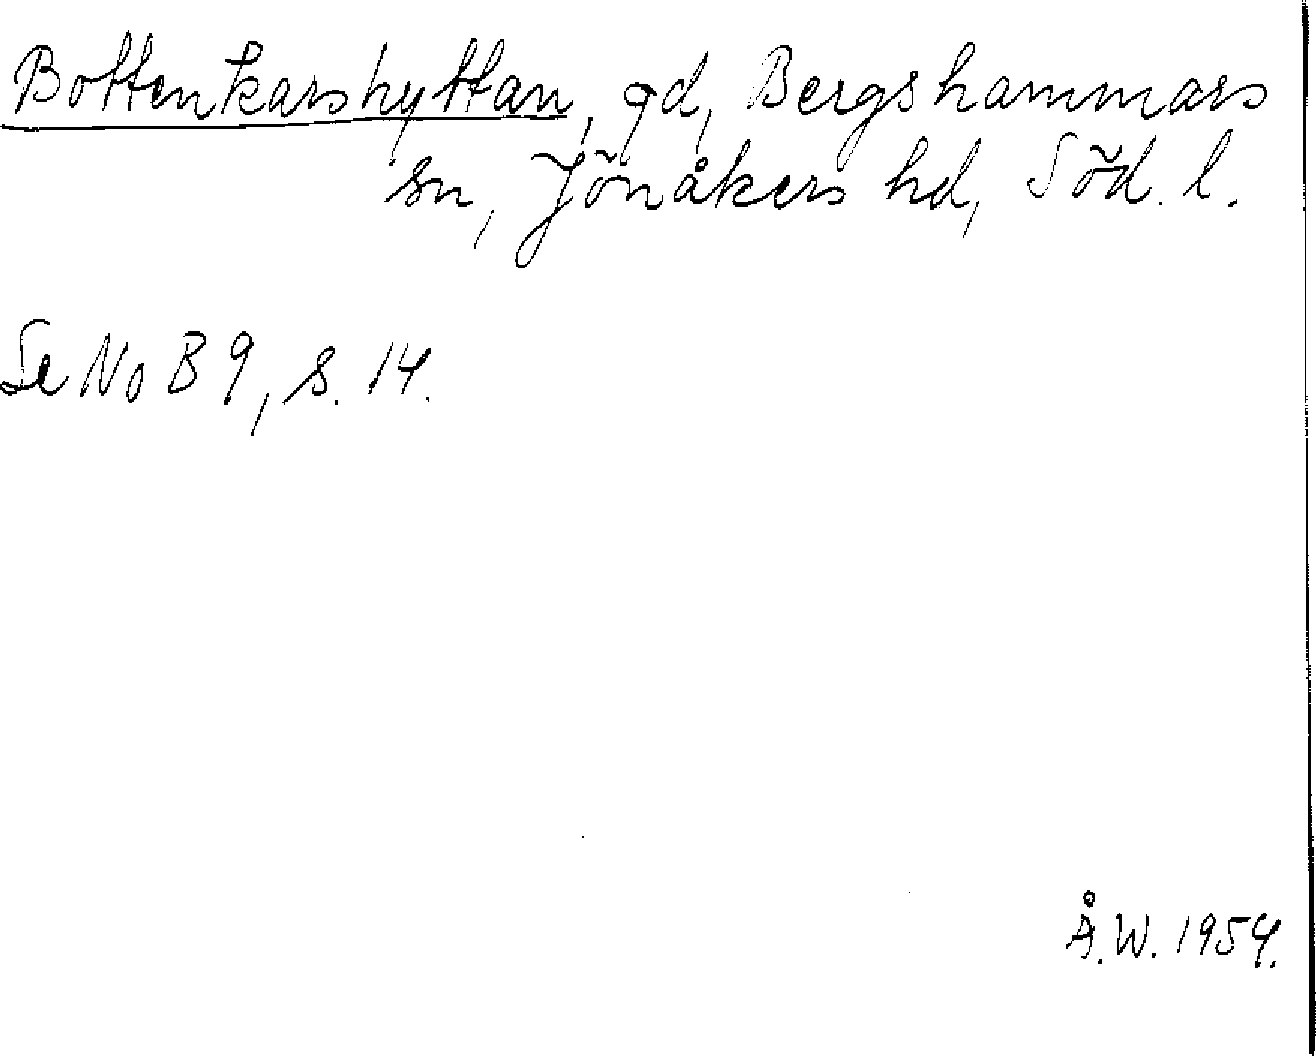 Bottenkarshyttan, gd, Bergshammars
sn, Jönåkers hd, Söd. l.
Se No B 9, s. 14.
Å.W. 1954.